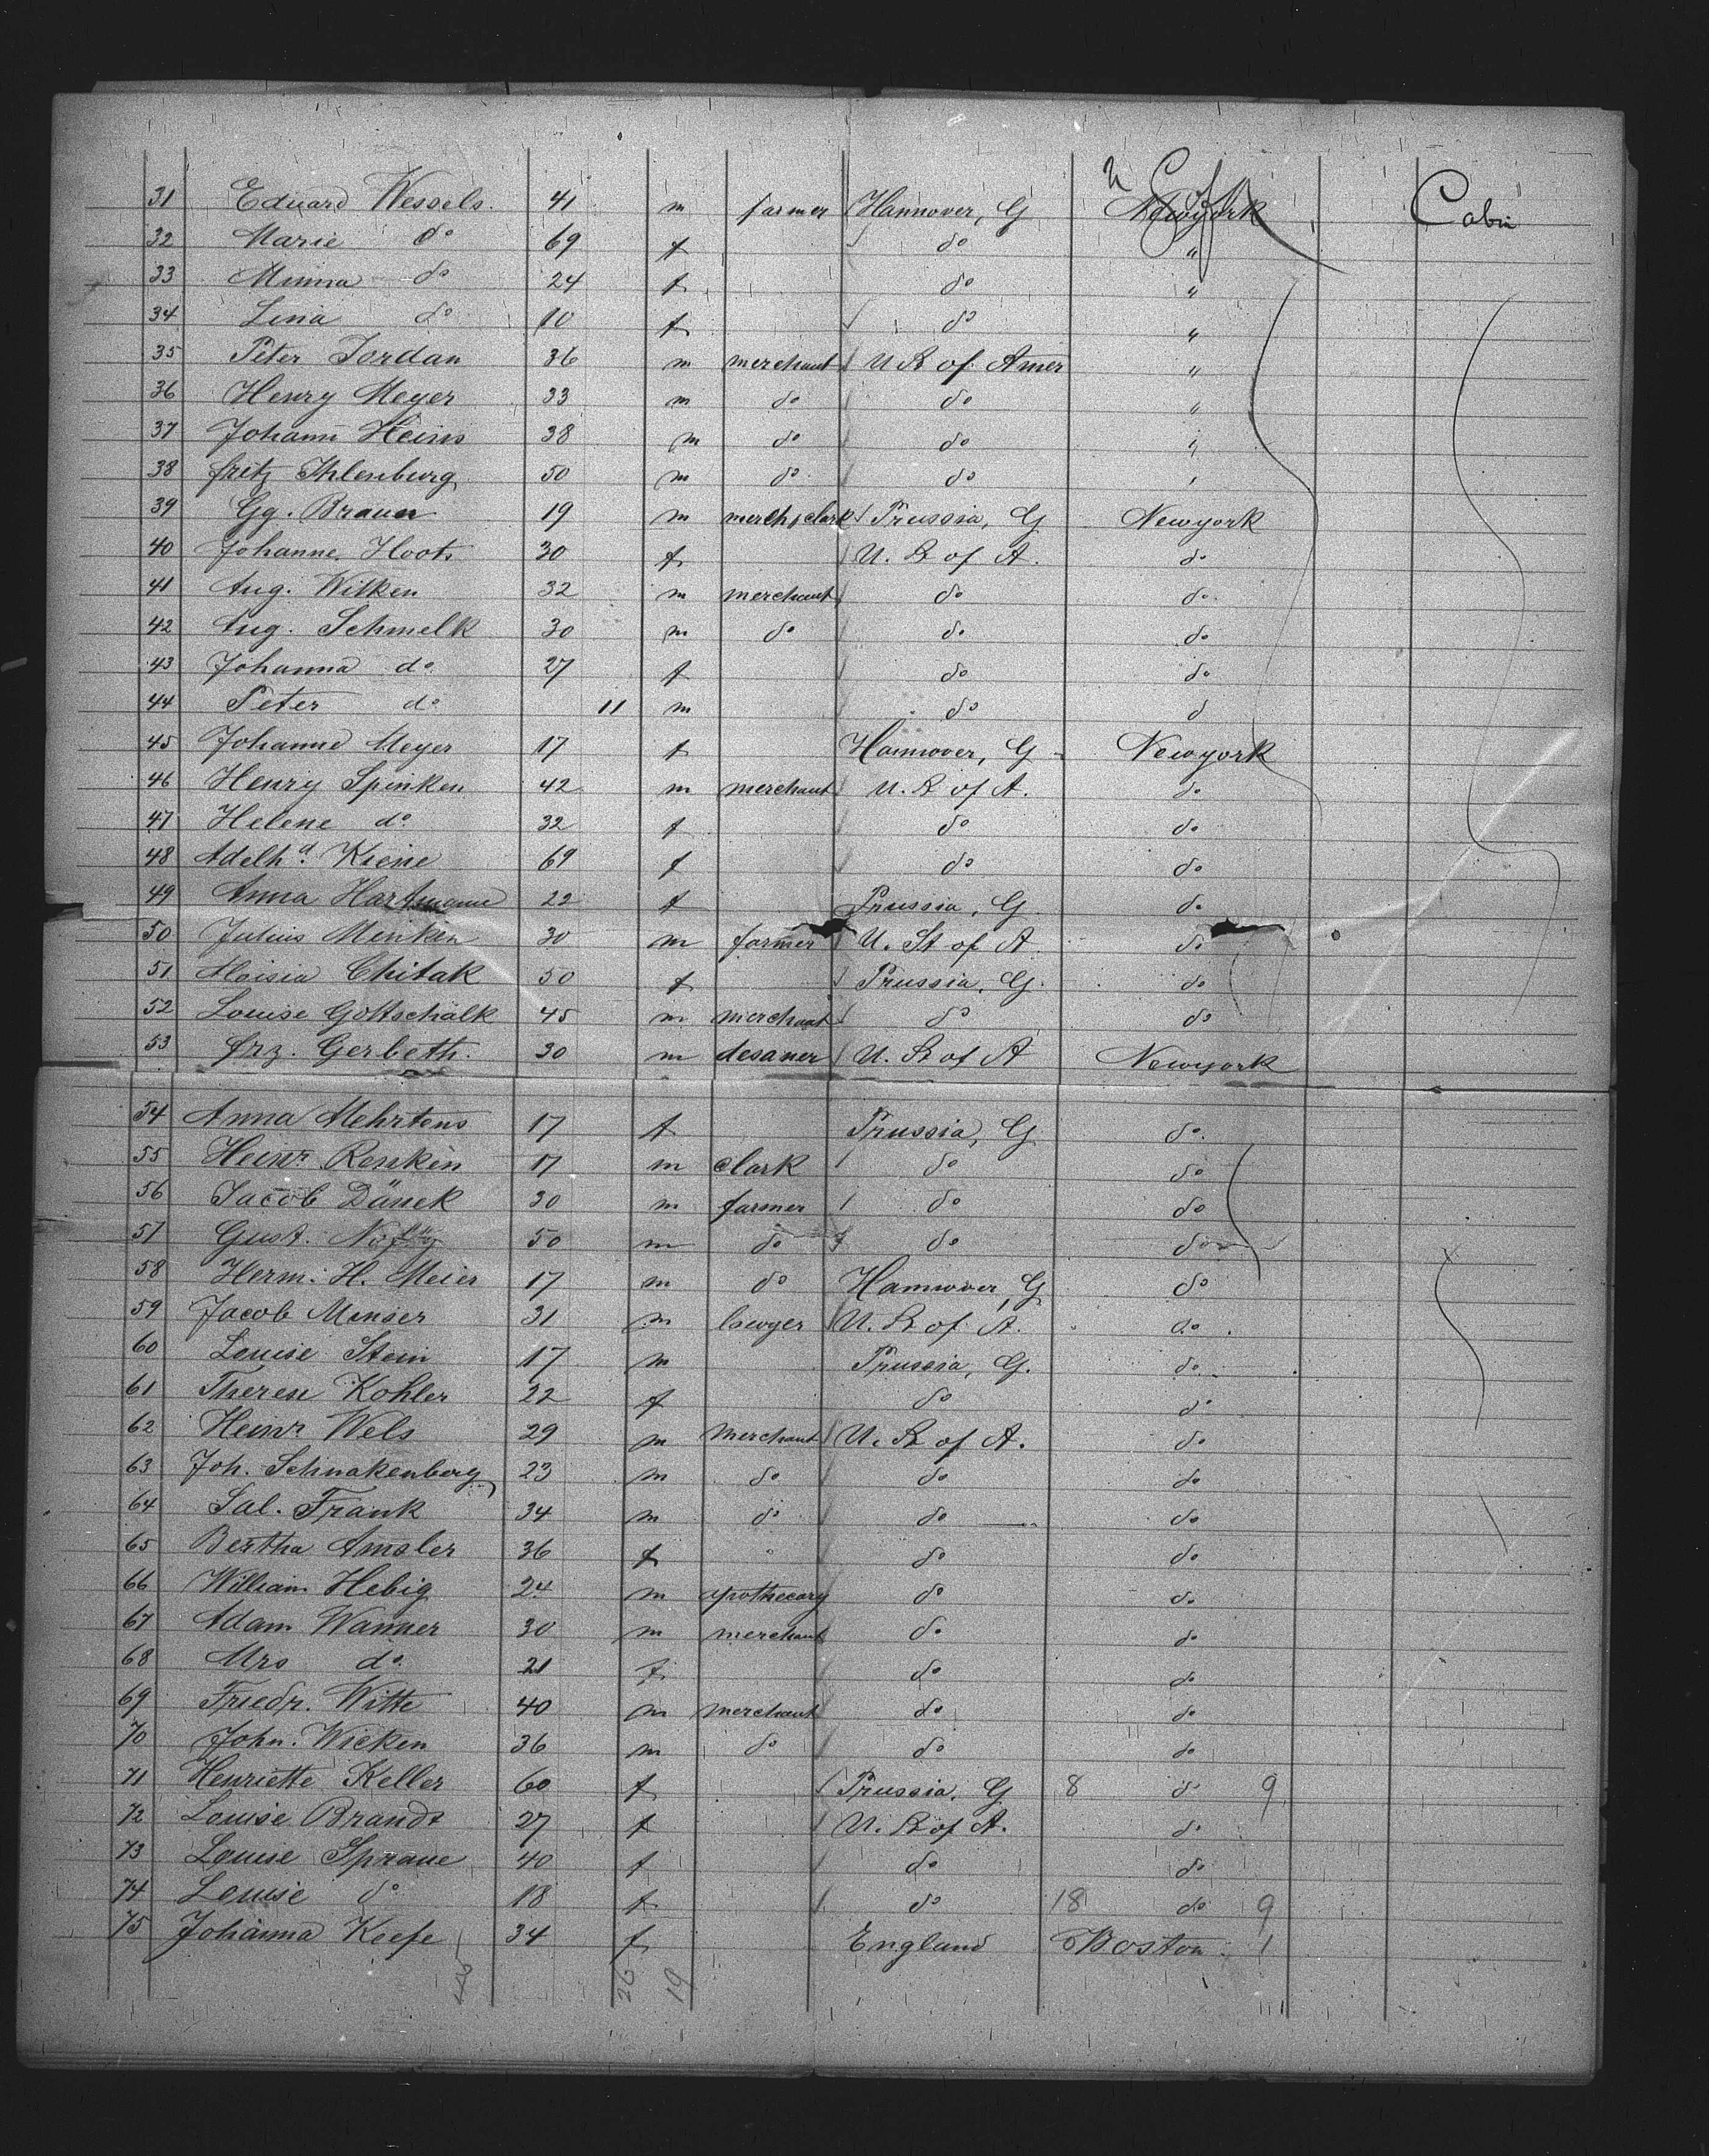 31 Eduard Wessels. 41 m farmer Hannover, G Newyork Cabin
32 Marie do 69 f do "
33 Minna do 24 f do "
34 Lina do 10 f do "
35 Peter Jordan 36 m merchant U St of Amer "
36 Henry Meyer 33 m do do "
37 Johann Heins 38 m do do "
38 fritz Ihlenburg 50 m do do "
39 Gg. Braun 19 m merch, clark Prussia, G Newyork
40 Johanne Hoots 30 f U. St of A. do
41 Aug. Wilken 32 m merchant do do.
42 Aug. Schmelk 30 m do do do
43 Johanna do. 27 f do do
44 Peter do 11 m do d
45 Johanne Meyer 17 f Hannover, G Newyork
46 Henry Spinken 42 m merchant U. St of A. do
47 Helene do. 32 f do do
48 Adelhd. Kiene 69 f do do
49 Anna Hartmann 22 f Prussia, G do
50 Julius Minken 30 m farmer U. St of A do
51 Aloisia Chitak 50 f Prussia, G. do
52 Louise Gottschalk 45 m merchant do do
53 frz. Gerbeth. 30 m desaner U. St of A Newyork
54 Anna Mehrtens 17 f Prussia, G do.
55 Heinr. Renken 17 m clark do do
56 Jacob Dänek 30 m farmer do do
57 Gust. 50 m do do do
58 Herm. H. Meier 17 m do Hannover, G do
59 Jacob Menser 31 m lawyer U. St of A. do.
60 Louise Stein 17 m Prussia, G. do.
61 Therese Kohler 22 f do do
62 Heinr Wels 29 m merchant U. St of A. do
63 Joh. Schnakenberg 23 m do do do
64 Sal. Frank 34 m do do do
65 Bertha Amsler 36 f do do
66 William Hebig 24 m apothecary do do
67 Adam Wanner 30 m merchant do do
68 Mrs do. 21 f do do
69 Friedr. Witte 40 m merchant do do
70 John. Wicken 36 m do do do
71 Henriette Keller 60 f Prussia, G 8 do 9
72 Louise Brandt 27 f U. St of A. do
73 Louise Spraue 40 f do do
74 Louise do 18 f do 18 do 9
75 Johanna Keefe 34 f England Boston 1
26 19